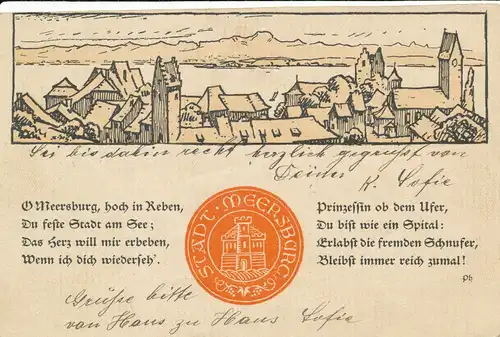 Sei bis dahin recht herzlich gegrüsst von
Deiner
K. Sofie
O Meersburg, hoch in Reben,
Du feste Stadt am See;
Das Herz will mir erbeben,
Wenn ich dich wiederseh'.
STADT · MEERSBURG
Prinzessin ob dem Ufer,
Du bist wie ein Spital:
Erlabst die fremden Schnufer,
Bleibst immer reich zumal!
Ph
Grüsse bitte
von Haus zu Haus Sofie